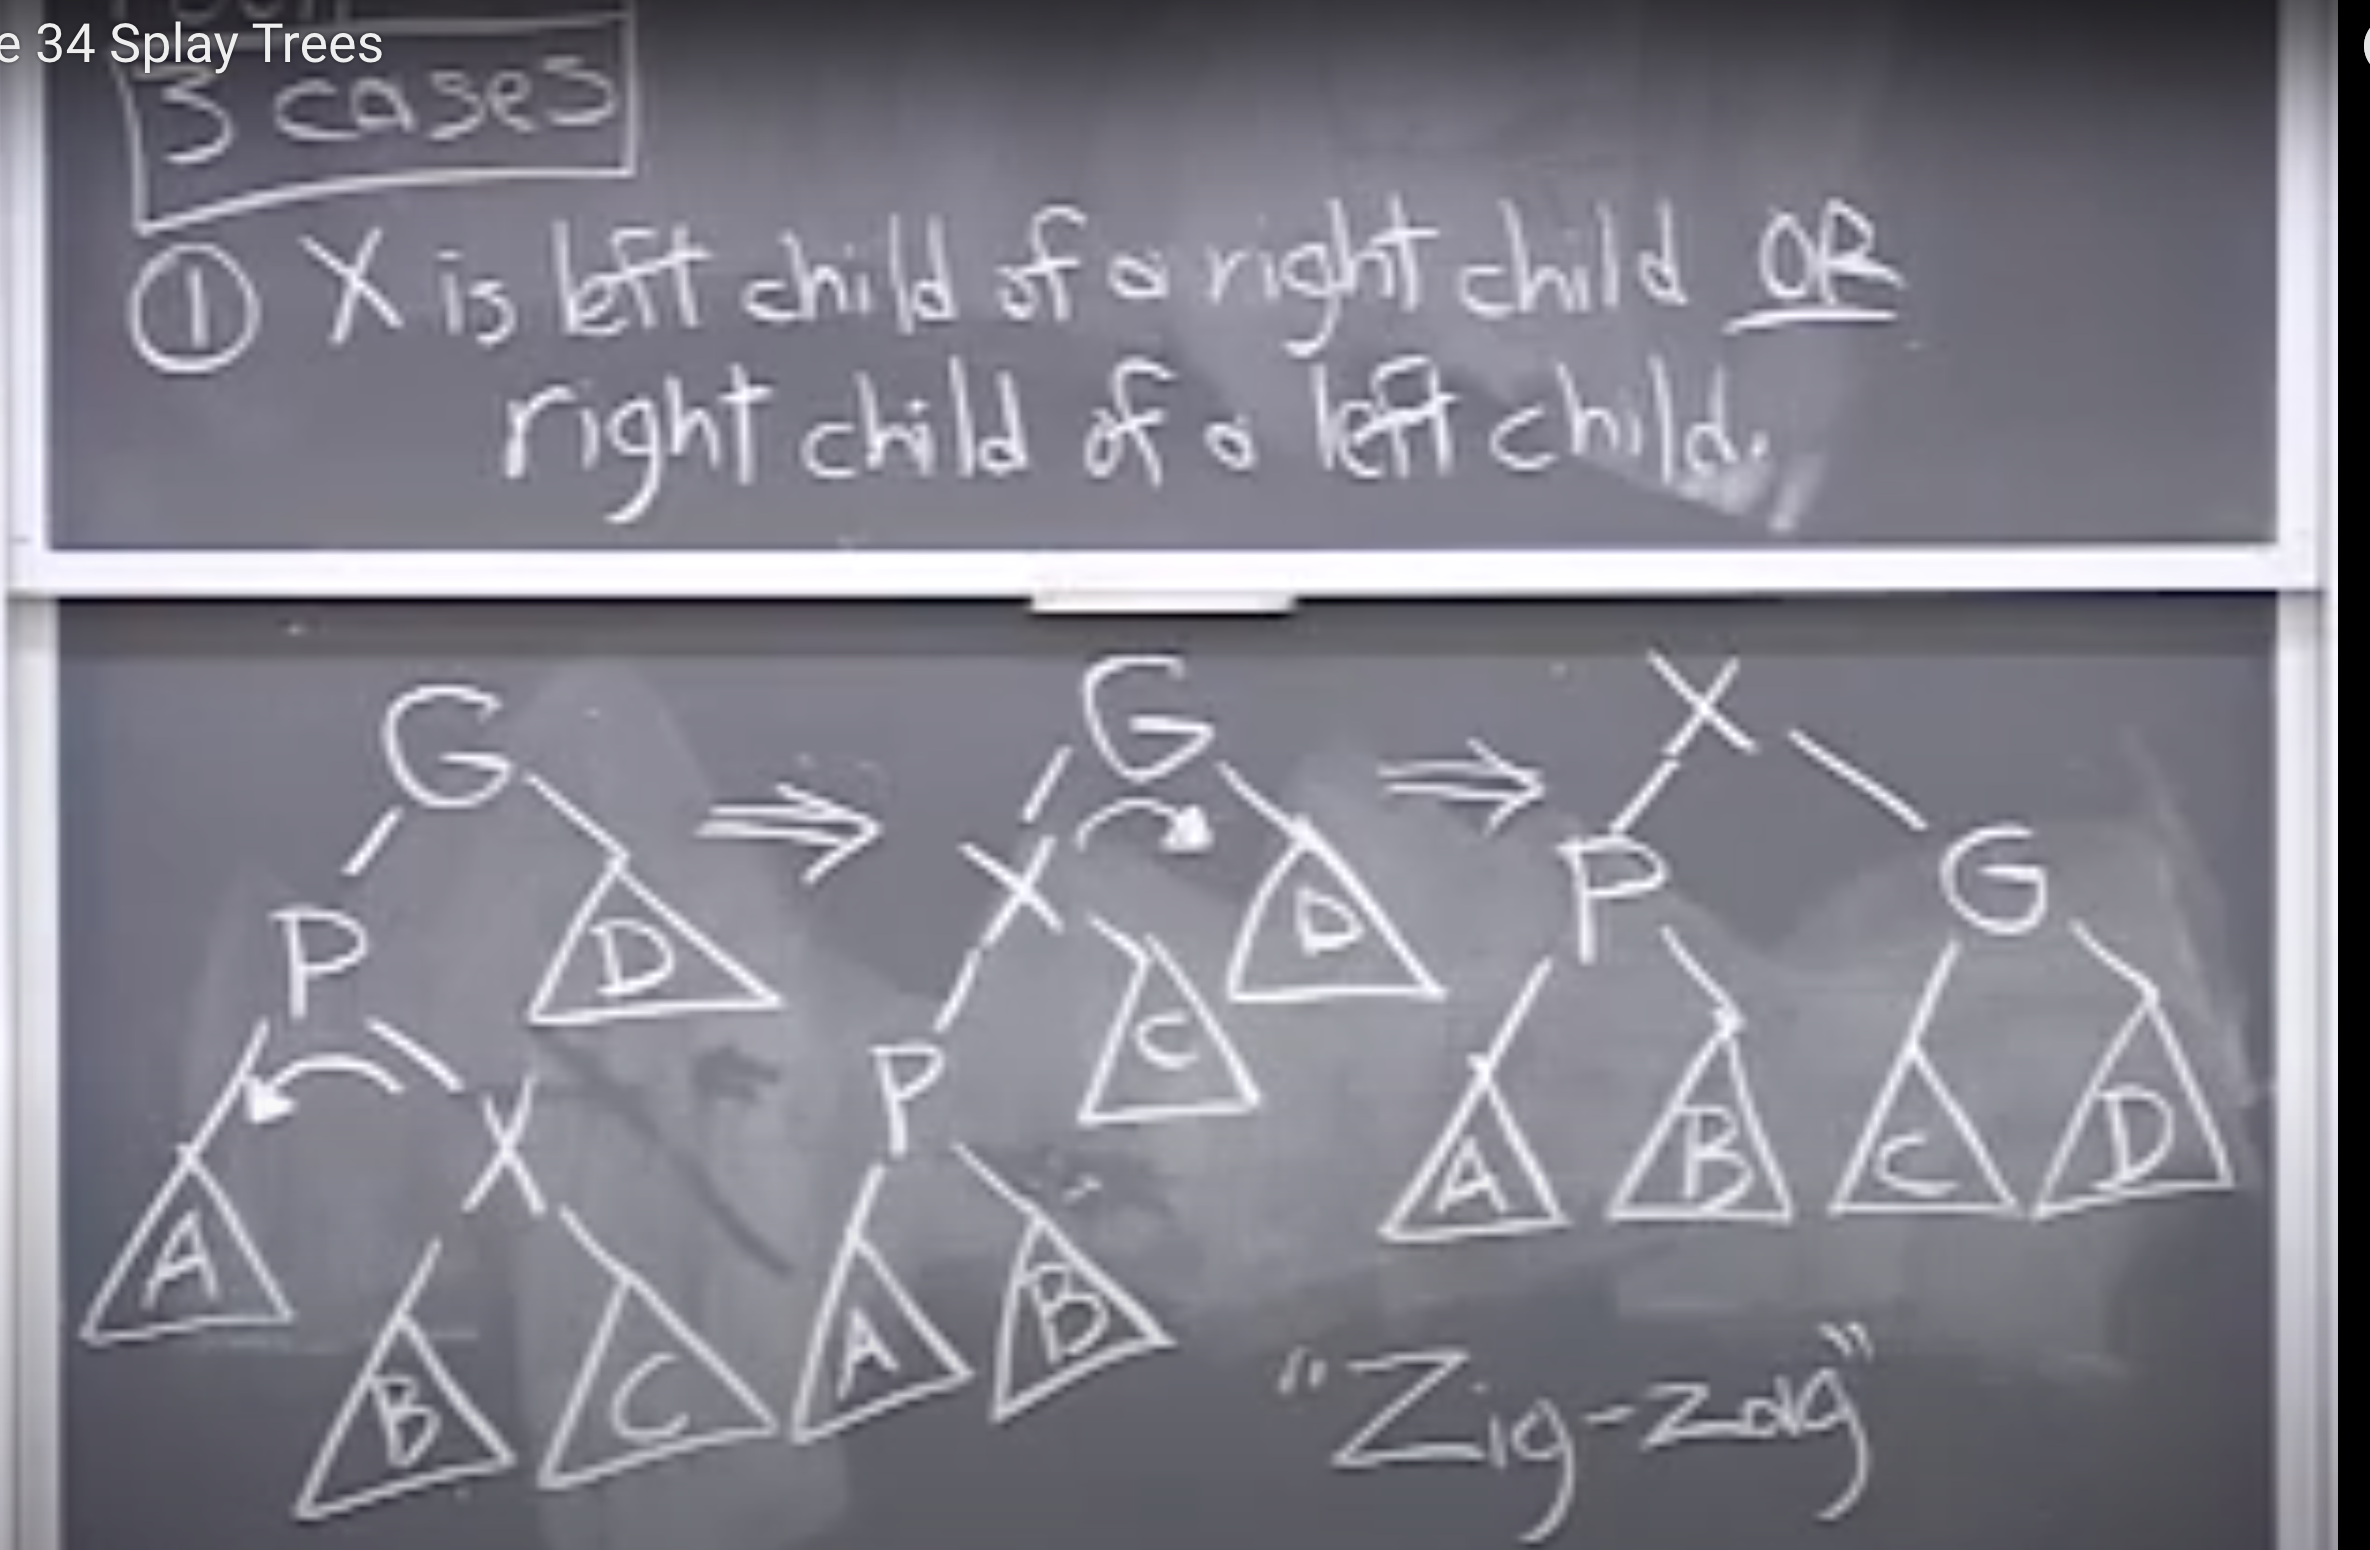 e 34 Splay Trees
3 cases
① X is left child of a right child OR
right child of a left child.
G ⇒ G ⇒ X
P D X D P G
A X P C A B C D
B C A B
"Zig-zag"